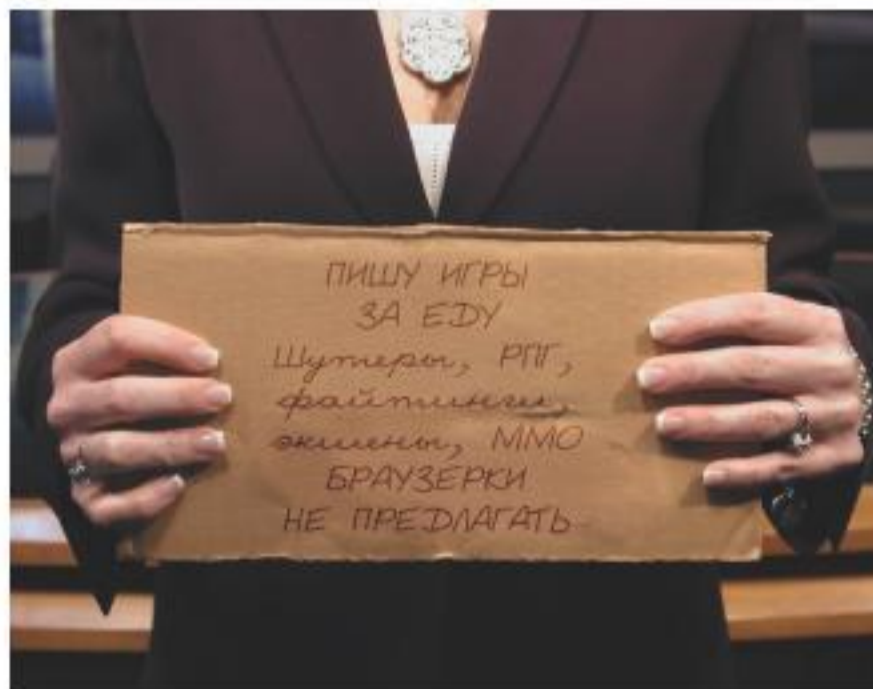 ПИШУ ИГРЫ
ЗА ЕДУ
Шутеры, РПГ,
файтинги,
экшены, ММО
БРАУЗЕРКИ
НЕ ПРЕДЛАГАТЬ